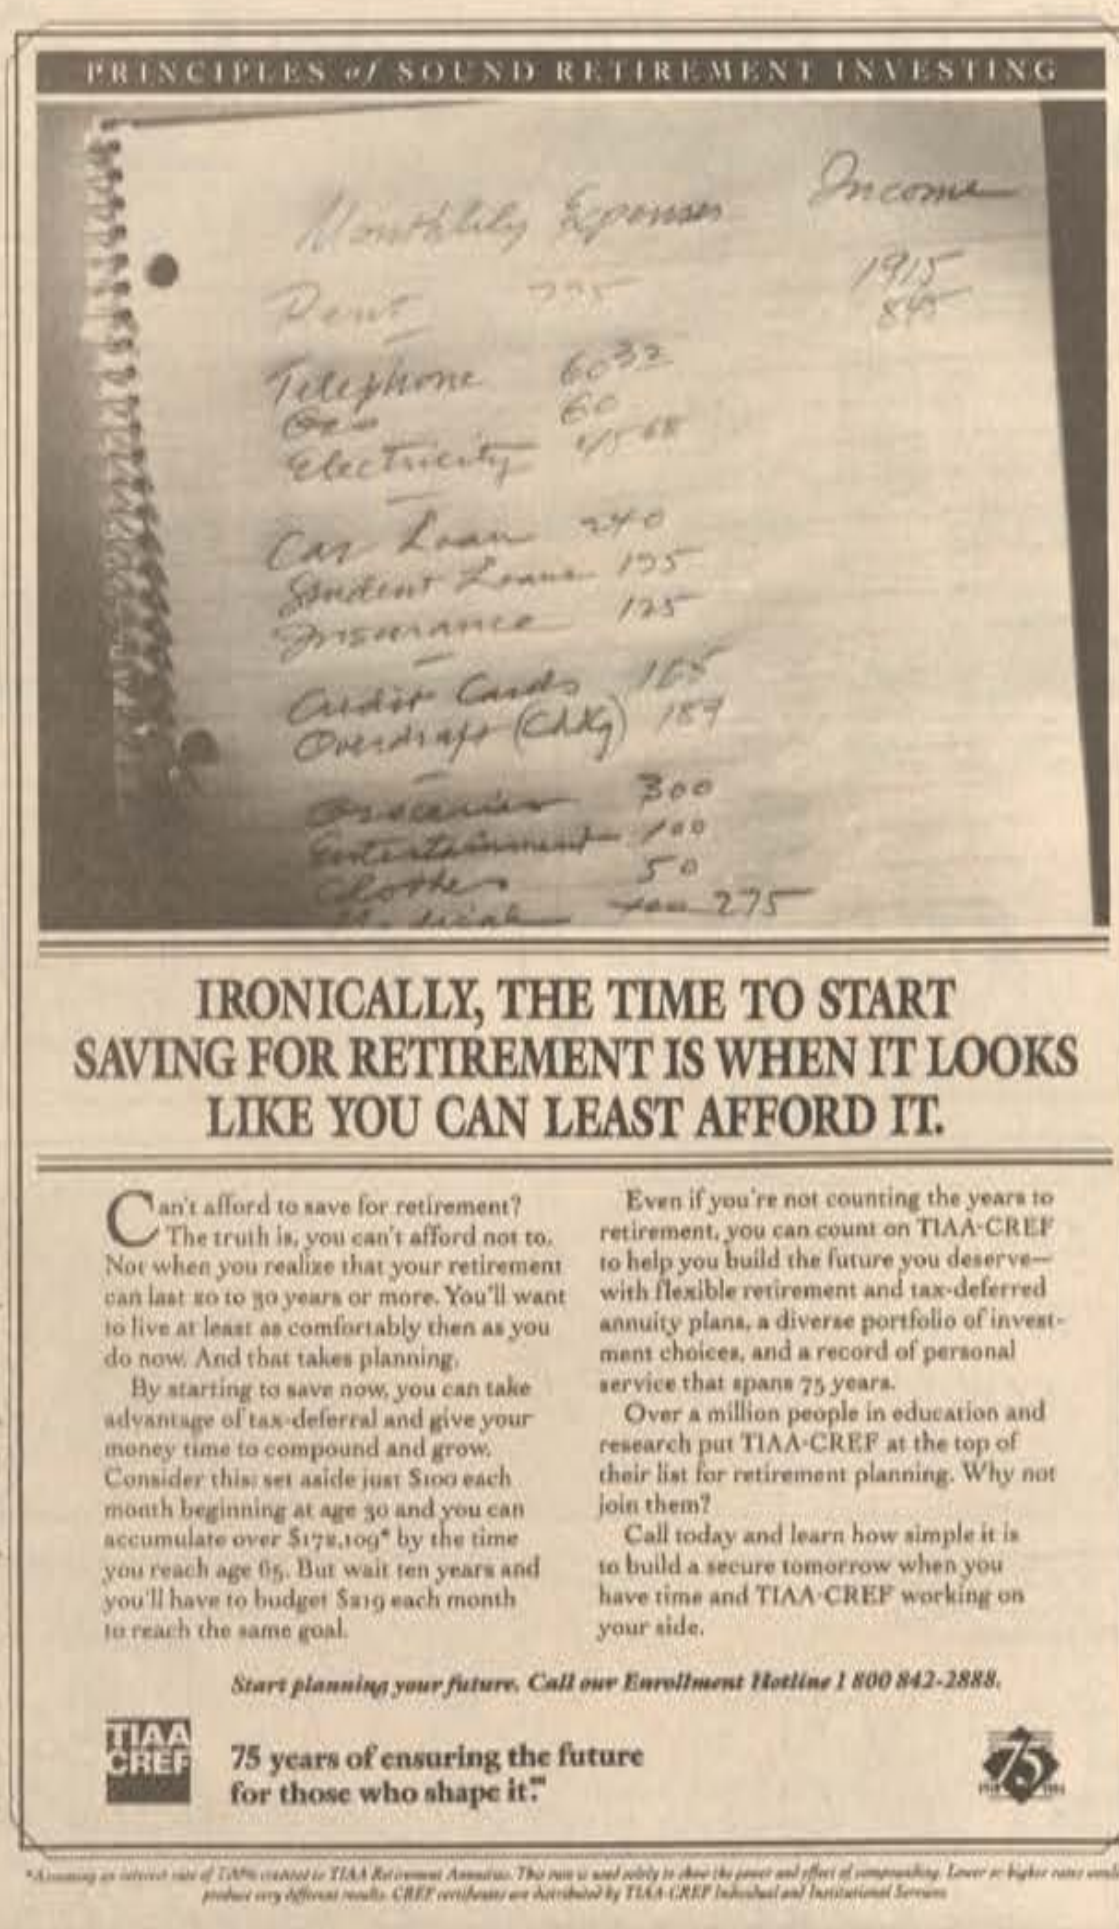 PRINCIPLES of SOUND RETIREMENT INVESTING
Monthly Expenses Income
Rent 775 1915
845
Telephone 60 32
Gas 60
Electricity 45 68
Car Loan 240
Student Loans 175
Insurance 125
Credit Cards 165
Overdraft (Chkg) 189
Groceries 300
Entertainment 100
Clothes 50
275
IRONICALLY, THE TIME TO START
SAVING FOR RETIREMENT IS WHEN IT LOOKS
LIKE YOU CAN LEAST AFFORD IT.
Can't afford to save for retirement?
The truth is, you can't afford not to.
Not when you realize that your retirement
can last 20 to 30 years or more. You'll want
to live at least as comfortably then as you
do now. And that takes planning.
By starting to save now, you can take
advantage of tax-deferral and give your
money time to compound and grow.
Consider this: set aside just $100 each
month beginning at age 30 and you can
accumulate over $172,109* by the time
you reach age 65. But wait ten years and
you'll have to budget $219 each month
to reach the same goal.
Even if you're not counting the years to
retirement, you can count on TIAA-CREF
to help you build the future you deserve—
with flexible retirement and tax-deferred
annuity plans, a diverse portfolio of invest-
ment choices, and a record of personal
service that spans 75 years.
Over a million people in education and
research put TIAA-CREF at the top of
their list for retirement planning. Why not
join them?
Call today and learn how simple it is
to build a secure tomorrow when you
have time and TIAA-CREF working on
your side.
Start planning your future. Call our Enrollment Hotline 1 800 842-2888.
TIAA
CREF
75 years of ensuring the future
for those who shape it.℠
75
*Assuming an interest rate of 7.00% credited to TIAA Retirement Annuities. This rate is used solely to show the power and effect of compounding. Lower or higher rates would
produce very different results. CREF certificates are distributed by TIAA-CREF Individual and Institutional Services.